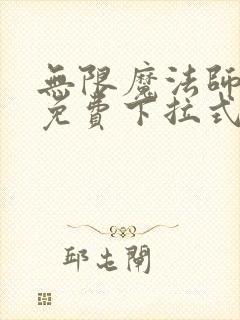 無限魔法師
免費下拉式
邱屯閘